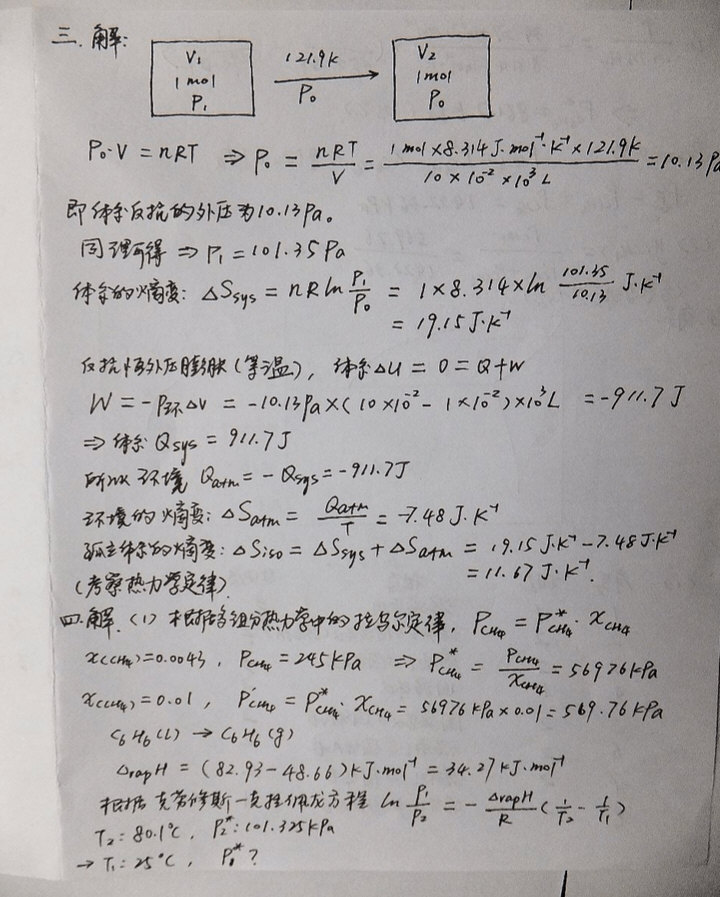 三. 解:
V₁ 1mol P₁ 121.9K P₀ V₂ 1mol P₀
P₀·V = nRT ⇒ P₀ = nRT/V = 1mol×8.314J·mol⁻¹·K⁻¹×121.9K/10×10⁻²×10³L = 10.13Pa
即体系反抗的外压为10.13Pa。
同理可得 ⇒ P₁ = 101.35Pa
体系的熵变: ΔSsys = nRln P₁/P₀ = 1×8.314×ln 101.35/10.13 J·K⁻¹
= 19.15J·K⁻¹
反抗恒外压膨胀(等温), 体系ΔU = 0 = Q+W
W = -P环ΔV = -10.13Pa×(10×10⁻² - 1×10⁻²)×10³L = -911.7J
⇒ 体系 Qsys = 911.7J
所以环境 Qatm = -Qsys = -911.7J
环境的熵变: ΔSatm = Qatm/T = -7.48J·K⁻¹
孤立体系的熵变: ΔSiso = ΔSsys + ΔSatm = 19.15J·K⁻¹ - 7.48J·K⁻¹
= 11.67J·K⁻¹.
(考察热力学定律)
四. 解. (1) 根据多组分热力学中的拉乌尔定律, PCH₄ = P*CH₄ · xCH₄
x(CH₄) = 0.0043, PCH₄ = 245kPa ⇒ P*CH₄ = PCH₄/xCH₄ = 56976kPa
x(CH₄) = 0.01, P'CH₄ = P*CH₄ · xCH₄ = 56976kPa×0.01 = 569.76kPa
C₆H₆(l) → C₆H₆(g)
ΔvapH = (82.93-48.66)kJ·mol⁻¹ = 34.27kJ·mol⁻¹
根据克劳修斯-克拉佩龙方程 ln P₁/P₂ = - ΔvapH/R (1/T₂ - 1/T₁)
T₂: 80.1°C, P₂*: 101.325kPa
→ T₁: 25°C, P₁* ?